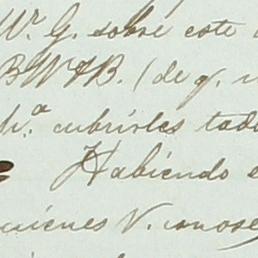 Wr. G. sobre este
BWFB. (de q.
p.ª cubrirles tod
Habiendo e
quienes V. conose